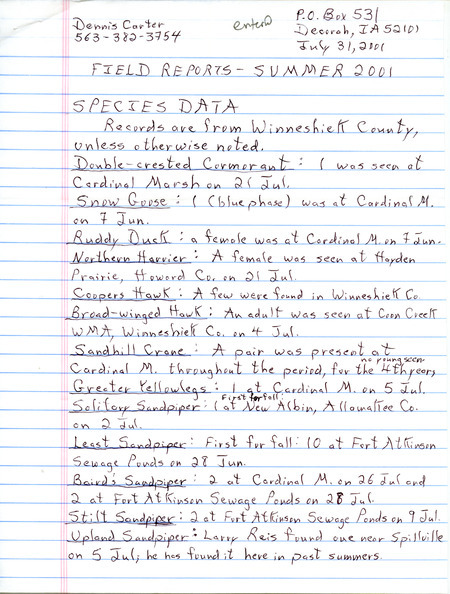 Dennis Carter
563-382-3754
entered
P.O. Box 531
Decorah, IA 52101
July 31, 2001
FIELD REPORTS - SUMMER 2001
SPECIES DATA
Records are from Winneshiek County,
unless otherwise noted.
Double-crested Cormorant : 1 was seen at
Cardinal Marsh on 21 Jul.
Snow Goose : 1 (blue phase) was at Cardinal M.
on 7 Jun.
Ruddy Duck : a female was at Cardinal M. on 7 Jun.
Northern Harrier : A female was seen at Hayden
Prairie, Howard Co. on 21 Jul.
Coopers Hawk : A few were found in Winneshiek Co.
Broad-winged Hawk : An adult was seen at Coon Creek
WMA, Winneshiek Co. on 4 Jul.
Sandhill Crane : A pair was present at
Cardinal M. throughout the period, for the 4th year,
no young seen
Greater Yellowlegs : 1 at Cardinal M. on 5 Jul.
Solitary Sandpiper : First for fall: 1 at New Albin, Allamakee Co.
on 2 Jul.
Least Sandpiper : First for fall: 10 at Fort Atkinson
Sewage Ponds on 28 Jun.
Baird's Sandpiper : 2 at Cardinal M. on 26 Jul and
2 at Fort Atkinson Sewage Ponds on 28 Jul.
Stilt Sandpiper : 2 at Fort Atkinson Sewage Ponds on 9 Jul.
Upland Sandpiper : Larry Reis found one near Spillville
on 5 Jul; he has found it here in past summers.